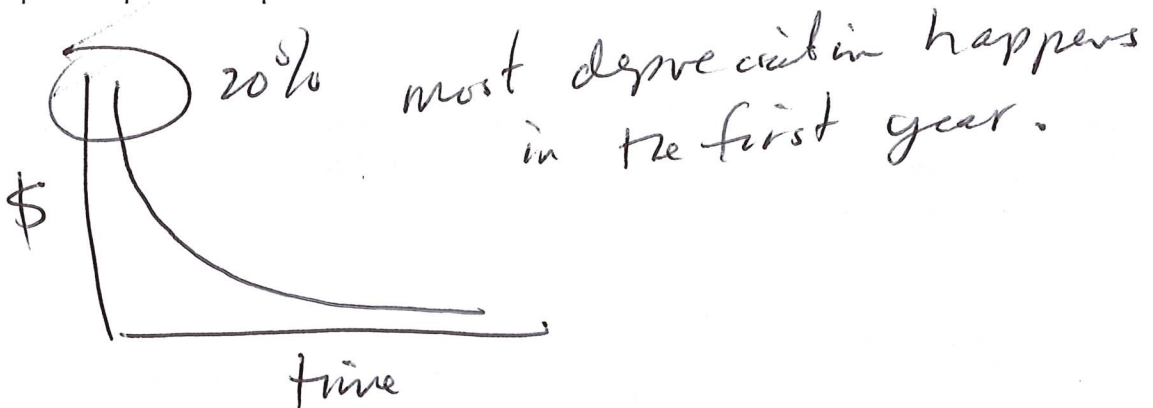 20% most depreciation happens
in the first year.
$
time